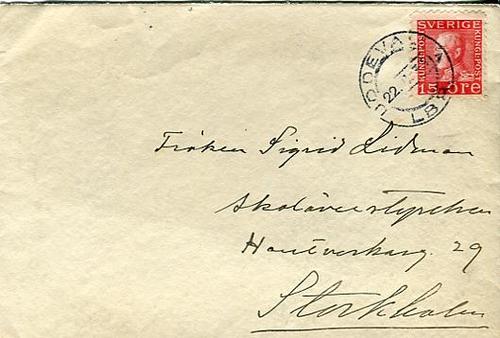 SVERIGE
KUNGL. POST
KUNGL. POST
15 ÖRE
UDDEVALLA
22
LBR
Fröken Sigrid Lidman
Skolöverstyrelsen
Hantverkarg. 29
Stockholm